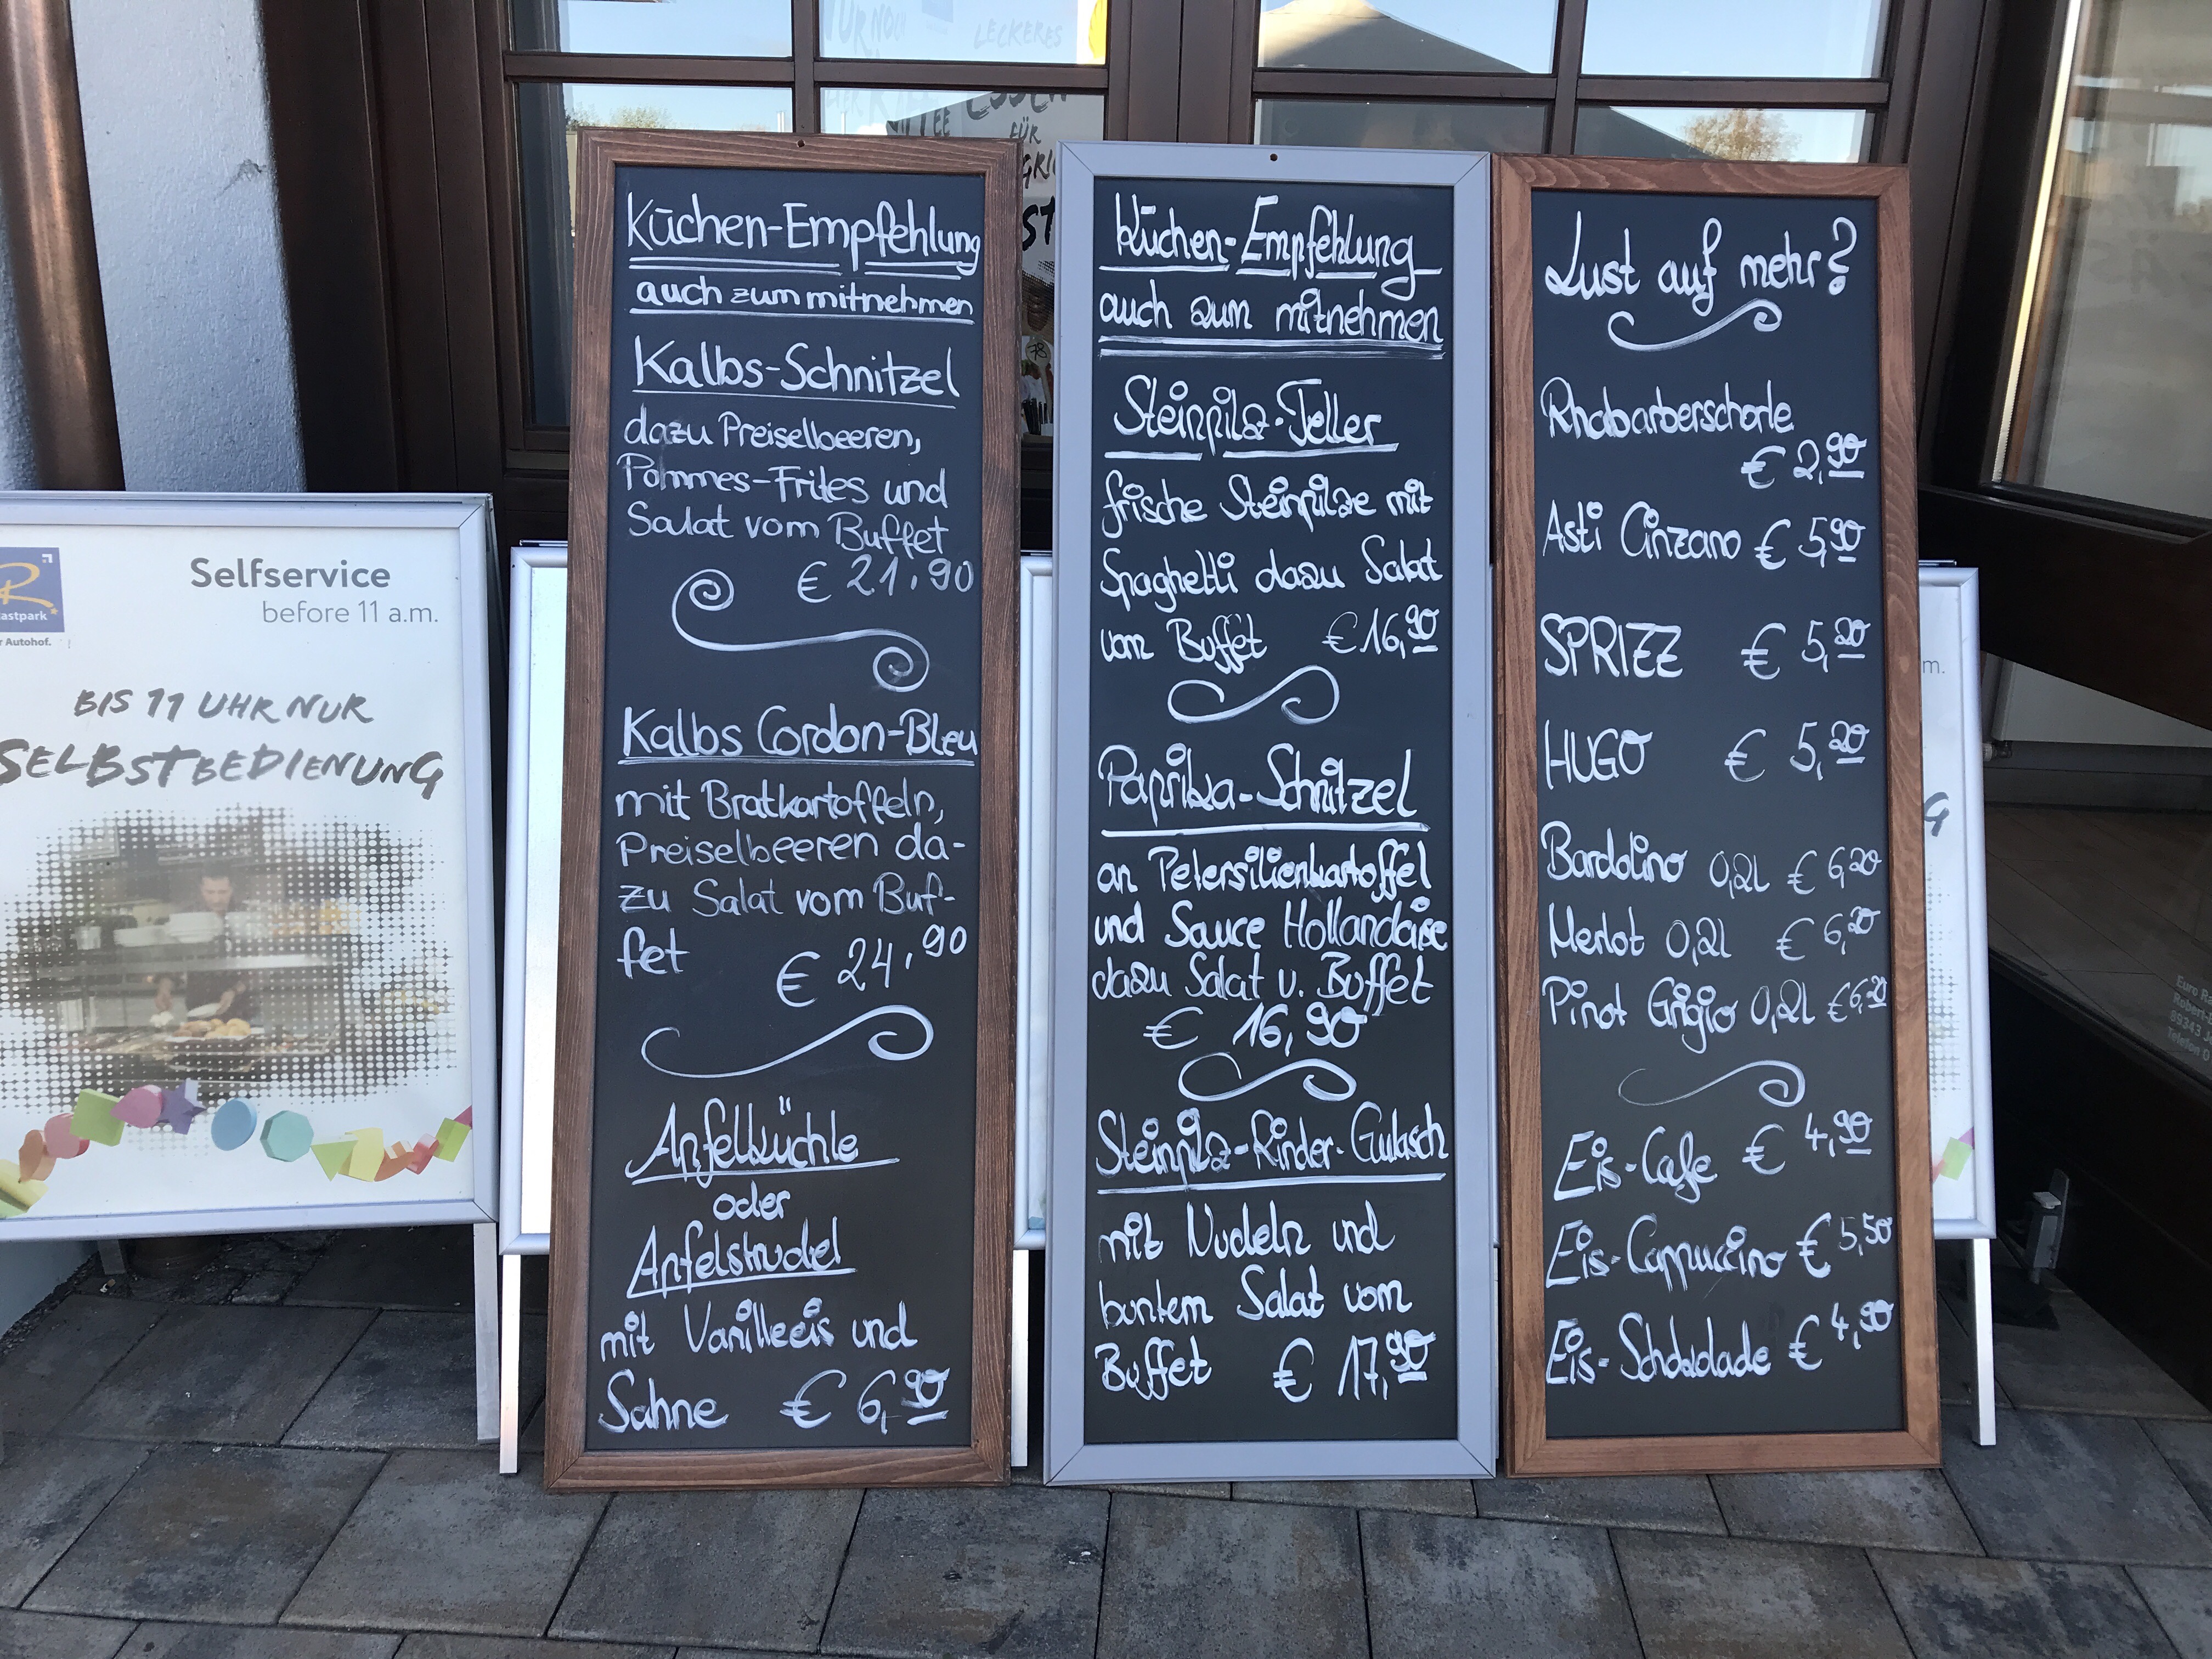 Selfservice
before 11 a.m.
R
astpark
r Autohof.
BIS 11 UHR NUR
SELBSTBEDIENUNG
LECKERES
FÜR
Küchen-Empfehlung
auch zum mitnehmen
Kalbs-Schnitzel
dazu Preiselbeeren,
Pommes-Frites und
Salat vom Buffet
€ 21.90
Kalbs Cordon-Bleu
mit Bratkartoffeln,
Preiselbeeren da-
zu Salat vom Buf-
fet € 24.90
Apfelküchle
oder
Apfelstrudel
mit Vanilleeis und
Sahne € 6,90
Küchen-Empfehlung
auch zum mitnehmen
Steinpilz-Teller
frische Steinpilze mit
Spaghetti dazu Salat
vom Buffet € 16,90
Paprika-Schnitzel
an Petersilienkartoffel
und Sauce Hollandaise
dazu Salat v. Buffet
€ 16,90
Steinpilz-Rinder-Gulasch
mit Nudeln und
buntem Salat vom
Buffet € 17,90
Lust auf mehr?
Rhabarberschorle
€ 2,90
Asti Cinzano € 5,90
SPRIZZ € 5,20
HUGO € 5,20
Bardolino 0,2l € 6,20
Merlot 0,2l € 6,20
Pinot Grigio 0,2l € 6,20
Eis-Cafe € 4,90
Eis-Cappuccino € 5,50
Eis-Schokolade € 4,90
m.
G